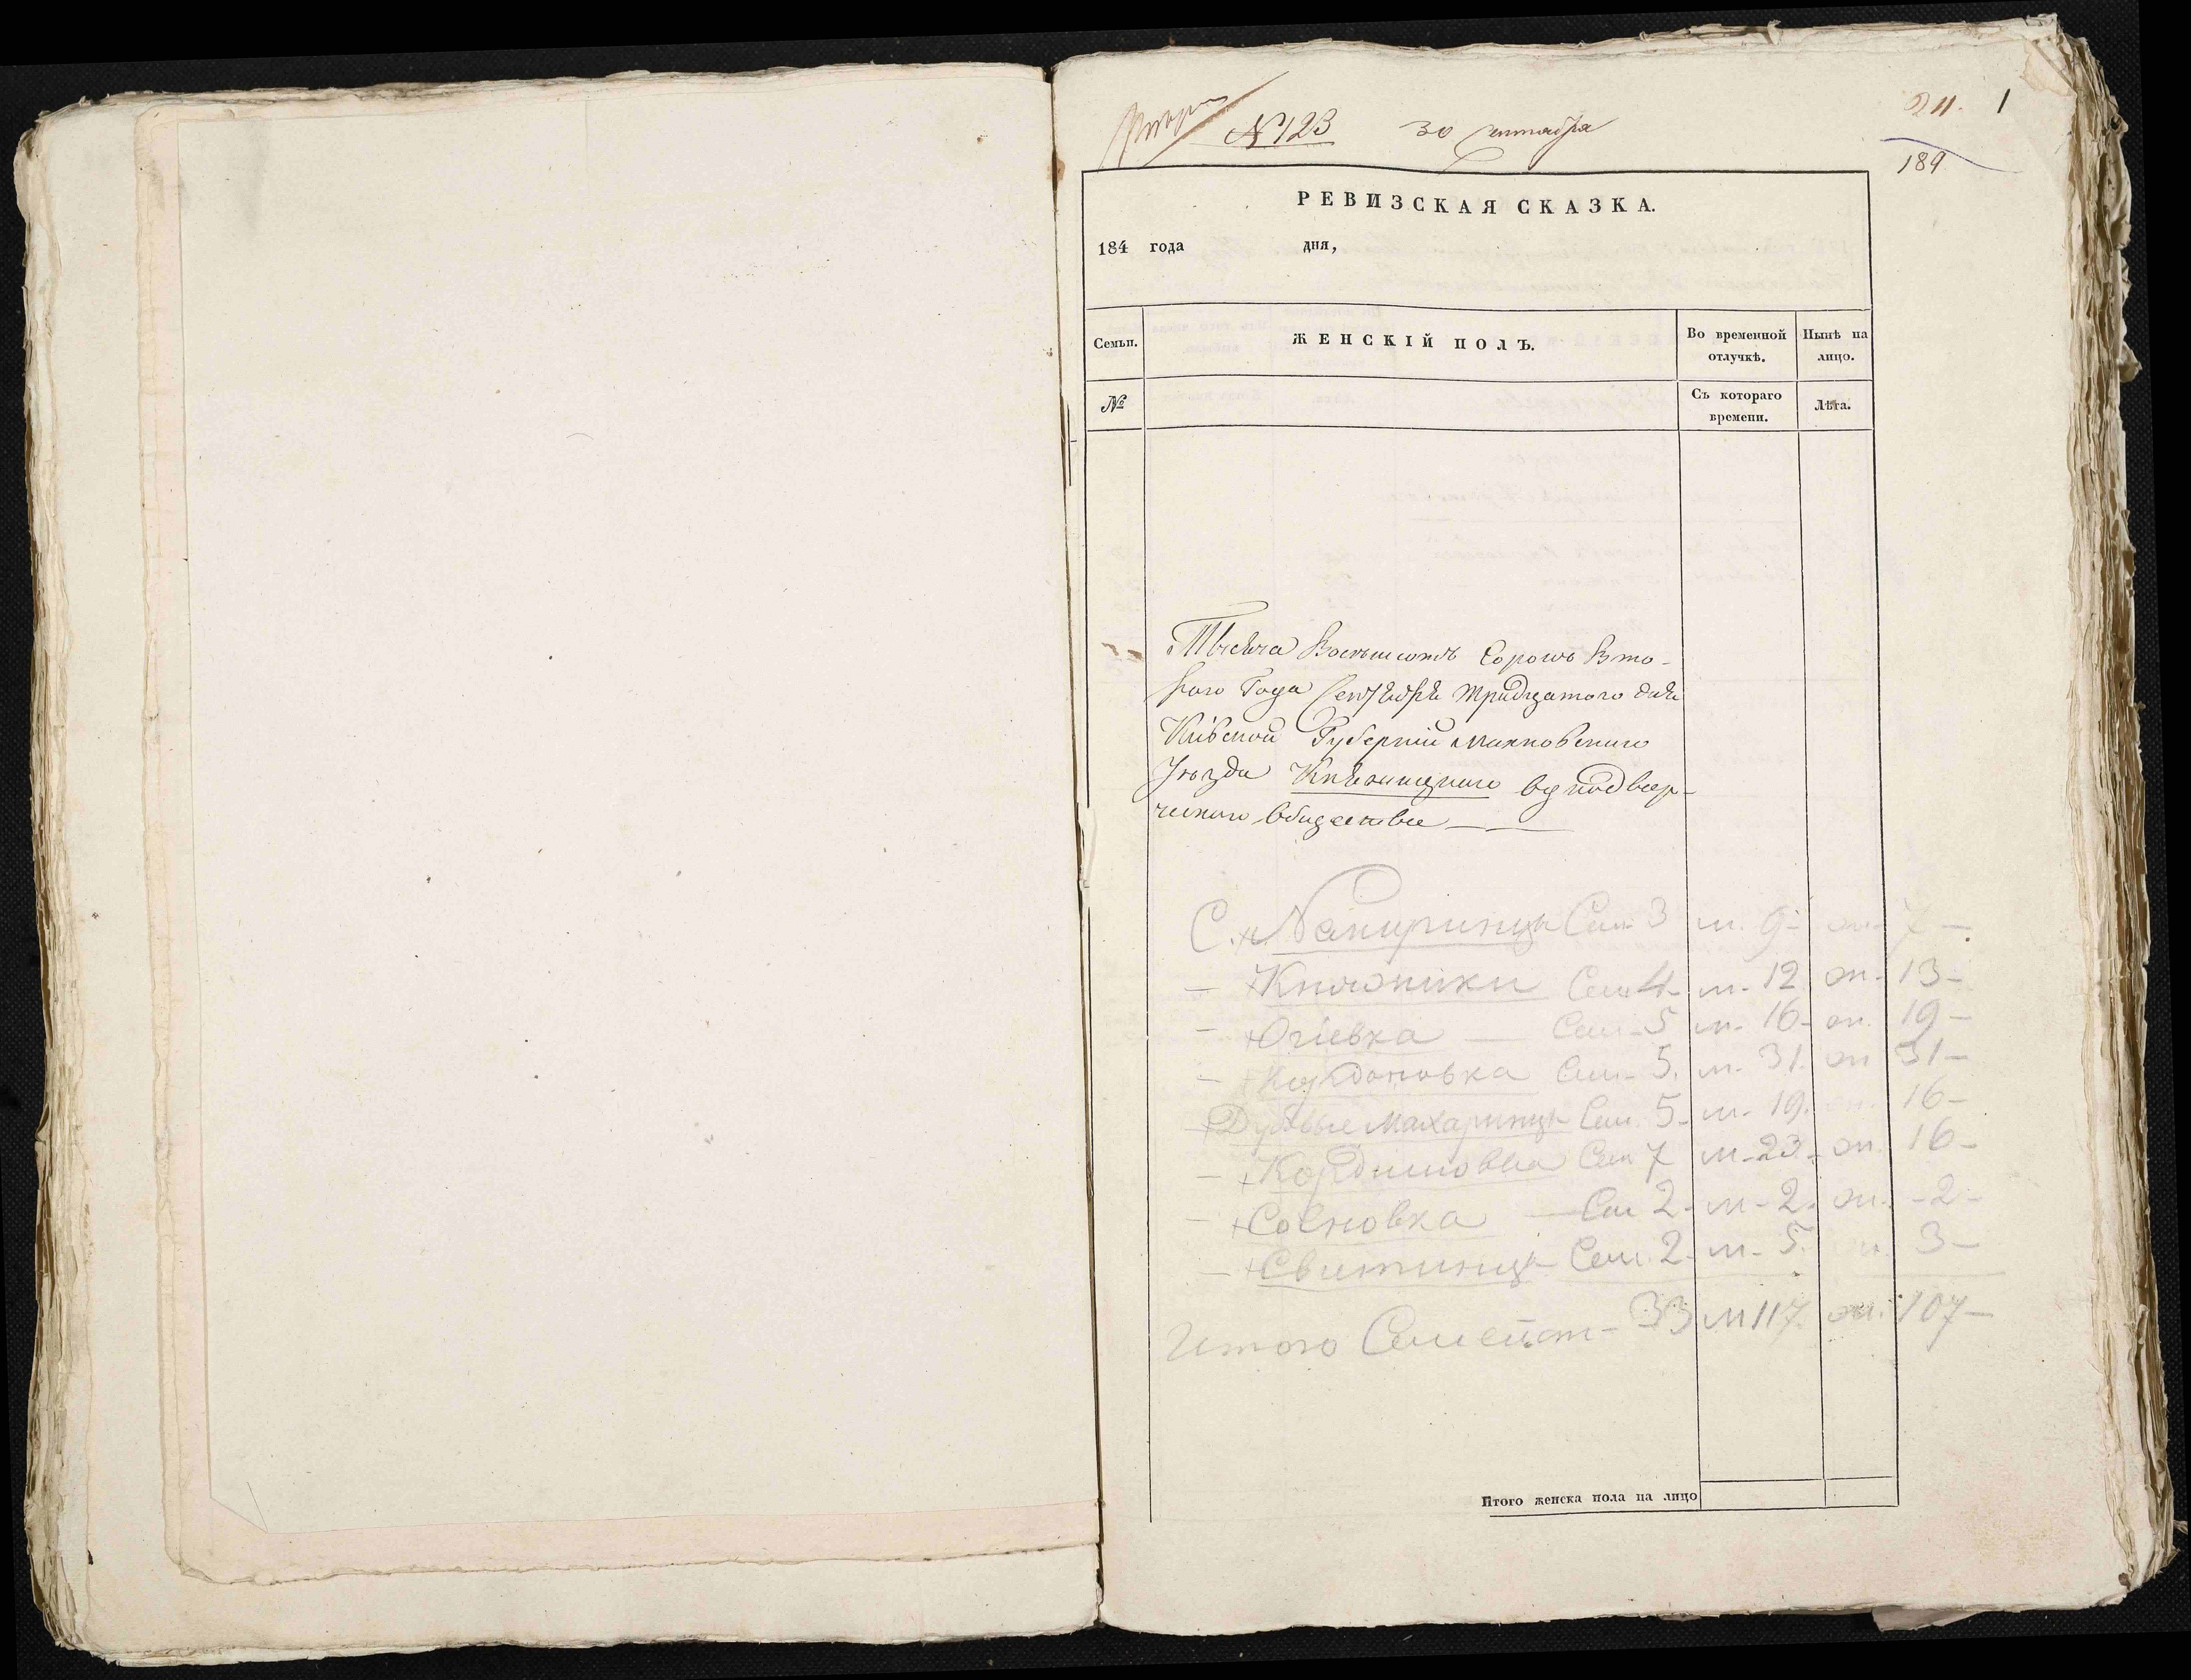 № 123 30 сентября
211. 1
189
РЕВИЗСКАЯ СКАЗКА.
184 года дня,
Семьи. ЖЕНСКІЙ ПОЛЪ. Во временной отлучкѣ. Нынѣ на лицо.
№ Съ котораго времени. Лѣта.
Тысяча Восемьсотъ Сорокъ Вто-
раго Года Сентября тридцатого дня
Кіевской Губерніи Махновскаго
Уѣзда Княжицкаго однодвор-
ческаго общества
Семь 3 м. 9- ж. 7-
- +Княжики Семь 4- м- 12 ж- 13-
- +Огіевка — Сем-5 м- 16- ж. 19-
- Сем- 5. м- 31. ж 31-
Махаринцы Сем. 5- м- 19. 16-
- + Сем 7 м-23- ж. 16-
- +Сосновка — Сем 2- м-2. ж. -2-
- +Свитинцы Сем. 2- м- 5. 3-
Итого Семейст- 33 м 117. ж. 107-
Итого женска пола на лицо